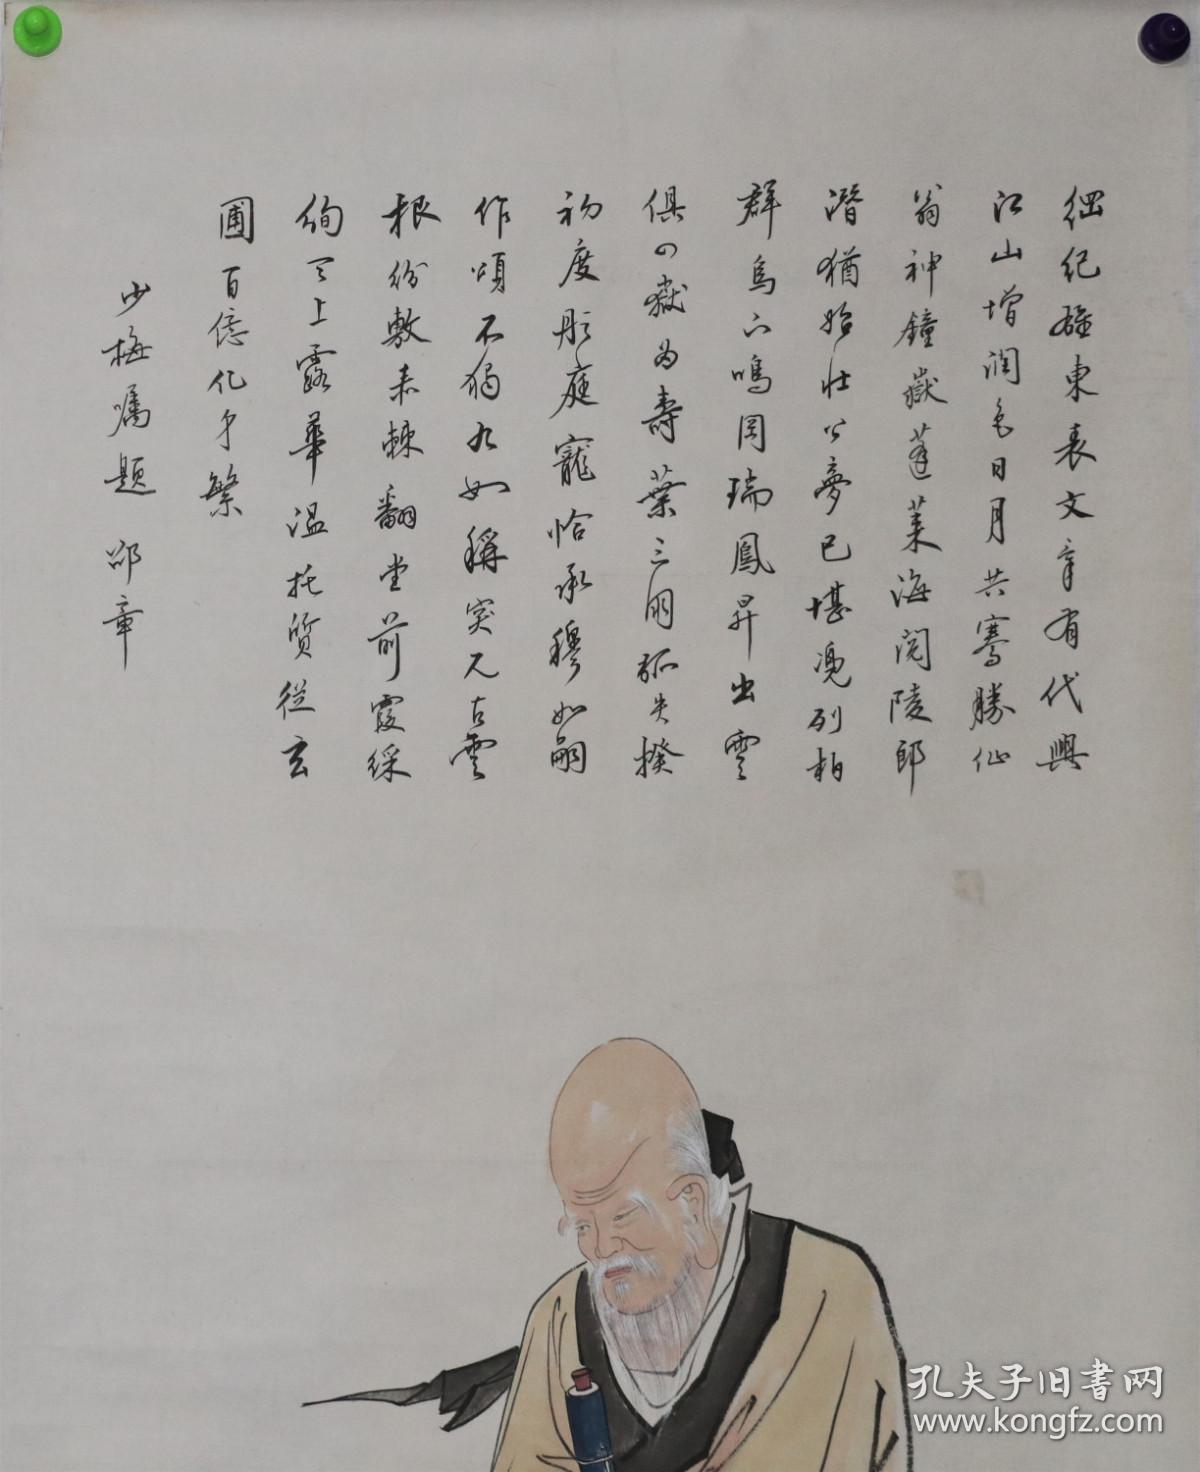 纪雄東表文章有代興
江山增润色日月共騫勝仙
翁神鐘嶽蓬莱海阅陵郎
潛猶始壮公夢已堪凭列柏
群烏下鳴岡瑞鳳昇出雲
俱四嶽為壽葉三用弧矢揆
初度彤庭寵恰承穆如嗣
作頌不獨九如稱突兀古雲
根份敷赤棘翻堂前霞綵
绚天上露華温托质從玄
圃百億化身繁
少梅嘱題 邵章
孔夫子旧書网
www.kongfz.com